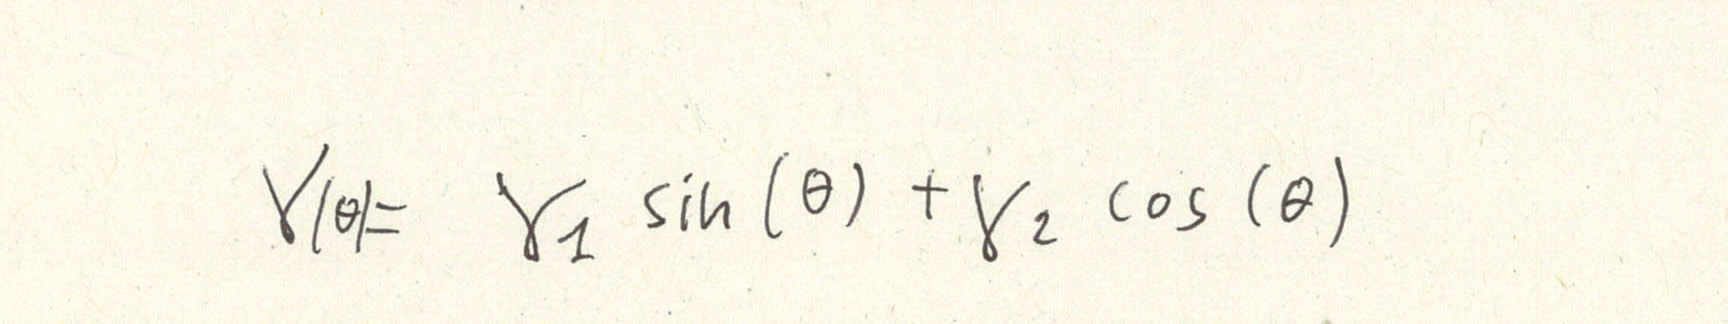 γ(θ)= γ₁ sin(θ) + γ₂ cos(θ)